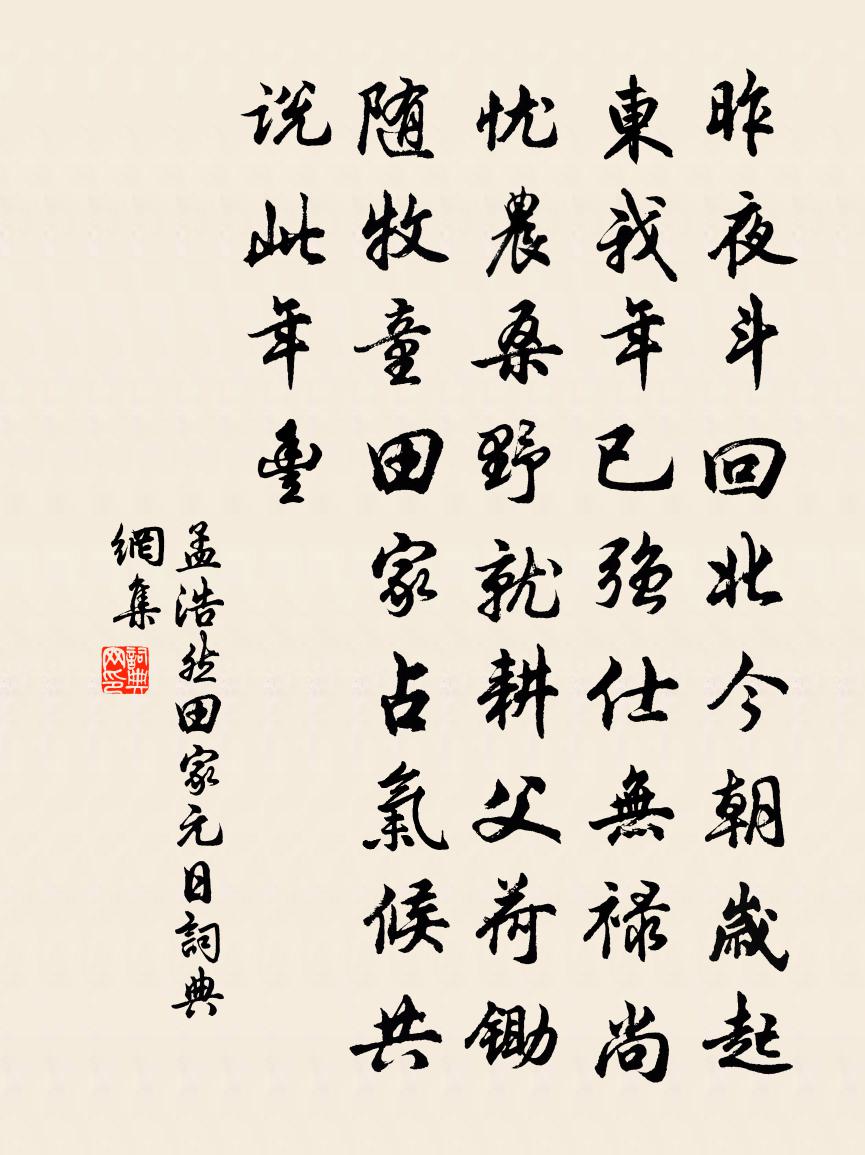 昨夜斗回北今朝歲起
東我年已強仕無禄尚
忧農桑野就耕父荷鋤
随牧童田家占氣候共
説此年豊
孟浩然田家元日詞典
網集
詞典
网印